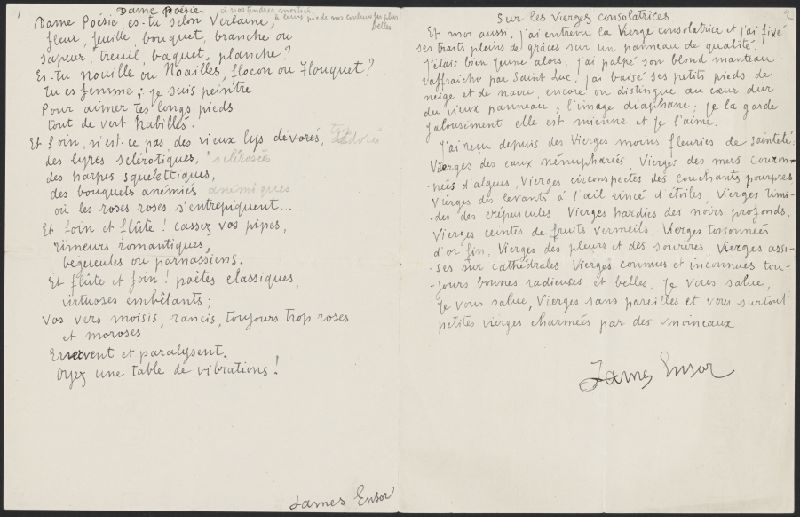 Dame Poésie
Dame Poésie es-tu selon Verlaine,
fleur, feuille, bouquet, branche ou
sapeur, treuil, baquet, planche?
Es-tu nouille ou Noailles, flocon ou Flouquet?
Tu es femme; je suis peintre
Pour aimer tes longs pieds
tout de vert habillés.
Et foin, n'est-ce pas des vieux lys dévorés,
des lyres sclérotiques,
des harpes squelettiques,
des bouquets anémiés anémiques
où les roses roses s'entrepiquent...
Et foin et flûte! cassez vos pipes,
rimeurs romantiques,
bégueules ou parnassiens.
Et flûte et foin! poètes classiques,
virtuoses embêtants;
Vos vers moisis, rancis, toujours trop roses
et moroses
Enervent et paralysent.
Oyez une table de vibrations!
James Ensor
2
Sur les Vierges consolatrices
Et moi aussi, j'ai entrevu la Vierge consolatrice et j'ai fixé
ses traits pleins de grâces sur un panneau de qualité.
J'étais bien jeune alors, j'ai palpé son blond manteau
raffraichi par Saint Luc, j'ai baisé ses petits pieds de
neige et de nacre, encore on distingue au cœur dur
du vieux panneau; l'image diaphane; je la garde
jalousement elle est mienne et je l'aime.
J'ai revu depuis des Vierges moins fleuries de sainteté
Vierges des eaux nénupharées Vierges des mers couron-
-nées d'algues, Vierges circonspectes des couchants pourprés
Vierges des levants à l'œil rincé d'étoiles, Vierges timi-
des des crépuscules Vierges hardies des noirs profonds.
Vierges ceintes de fruits vermeils Vierges
d'or fin, Vierges des pleurs et des sourires Vierges assi-
-ses sur cathédrales Vierges connues et inconnues tou-
-jours bonnes radieuses et belles. Je vous salue,
Je vous salue, Vierges sans pareilles et vous surtout
petites vierges charmées par des moineaux
James Ensor